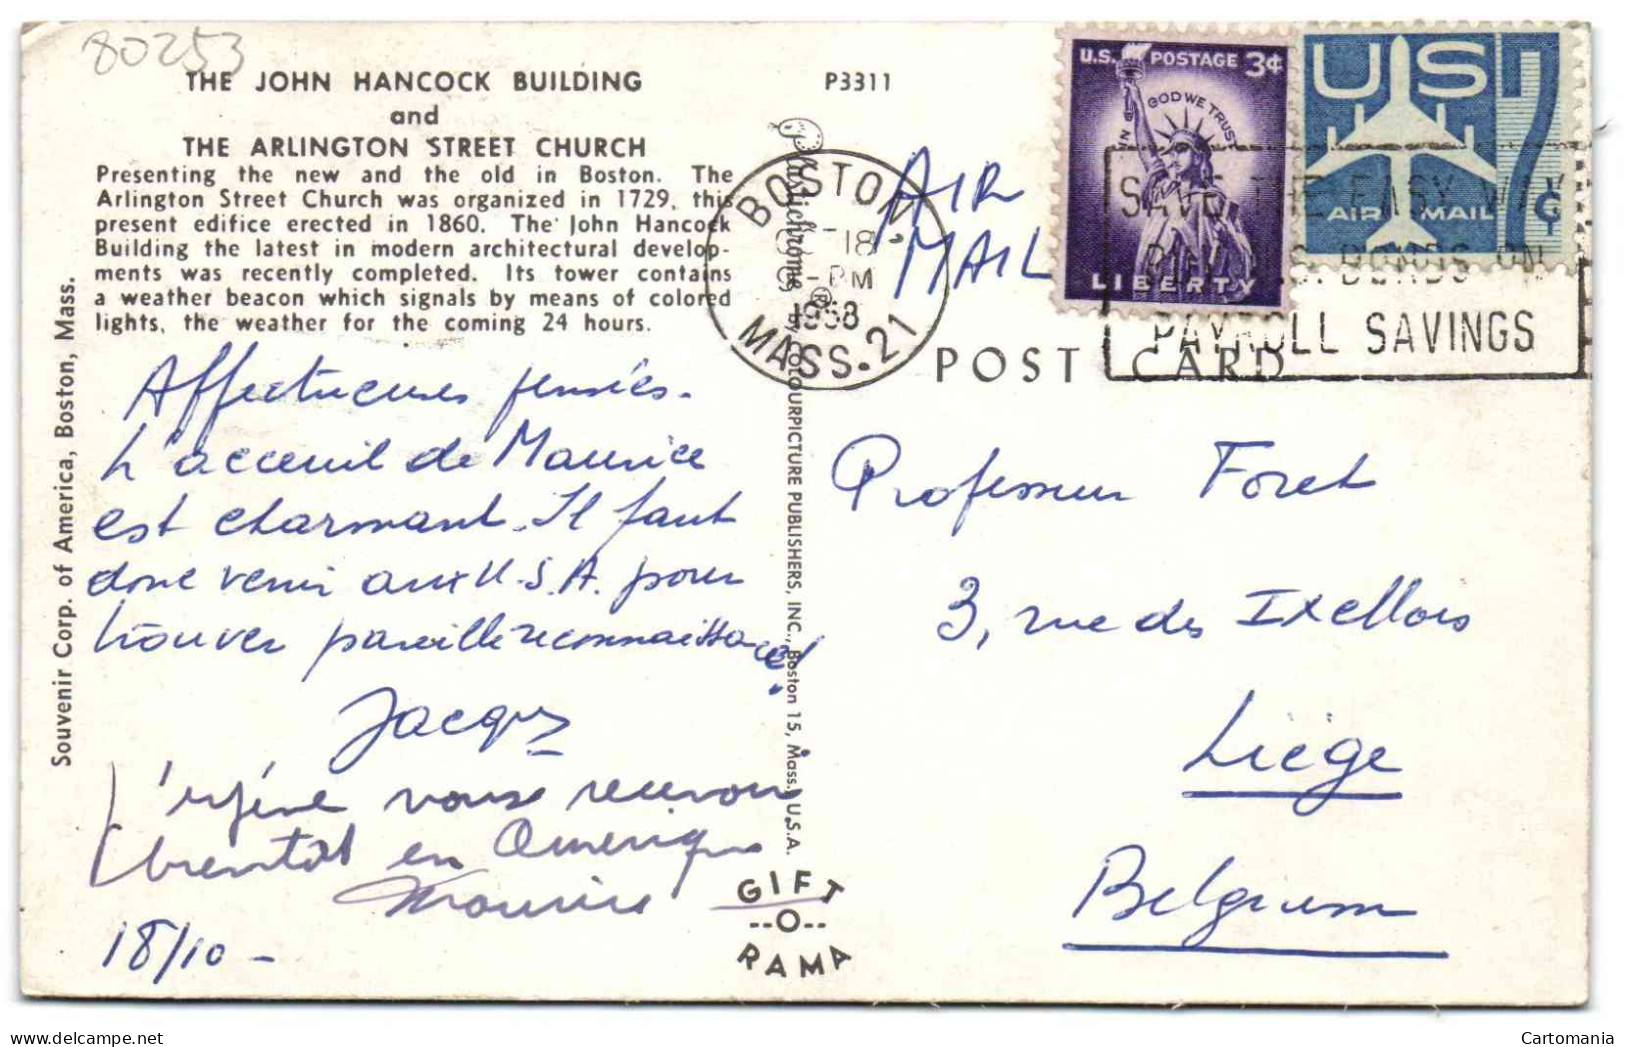 80253
THE JOHN HANCOCK BUILDING
and
THE ARLINGTON STREET CHURCH
Presenting the new and the old in Boston. The
Arlington Street Church was organized in 1729, this
present edifice erected in 1860. The John Hancock
Building the latest in modern architectural develop-
ments was recently completed. Its tower contains
a weather beacon which signals by means of colored
lights, the weather for the coming 24 hours.
P3311
Affectueuses pensées.
L'acceuil de Maurice
est charmant. Il faut
donc venir aux U.S.A. pour
trouver pareille reconnaissance!
Jacques
J'espère vous recevoir
bientôt en Amérique
Maurice
18/10 -
Souvenir Corp. of America, Boston, Mass.
Plastichrome ® by COLOURPICTURE PUBLISHERS, INC., Boston 15, Mass., U.S.A.
GIFT
--O--
RAMA
BOSTON,
18
PM
1958
MASS. 21
AIR
MAIL
U.S. POSTAGE 3¢
IN GOD WE TRUST
LIBERTY
US 7¢
AIR MAIL
SAVE THE EASY WAY
BUY U.S. BONDS ON
PAYROLL SAVINGS
POST CARD
Professeur Foret
3, rue des Ixellois
Liège
Belgium
Cartomania